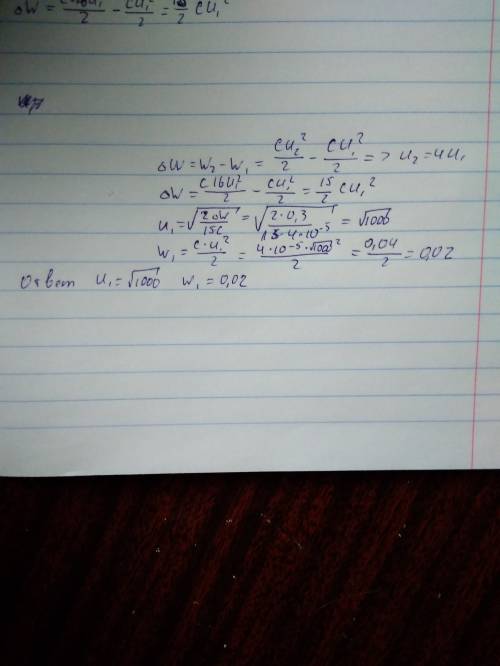 ΔW = C16U₁²/2 − CU₁²/2 = 15/2 CU₁²
ΔW = W₂ − W₁ = CU₂²/2 − CU₁²/2 => U₂ = 4U₁
ΔW = C16U₁²/2 − CU₁²/2 = 15/2 CU₁²
U₁ = √(2ΔW/15C) = √(2·0,3/15·4·10⁻⁵) = √1000
W₁ = C·U₁²/2 = 4·10⁻⁵·√1000²/2 = 0,04/2 = 0,02
Ответ U₁ = √1000 W₁ = 0,02